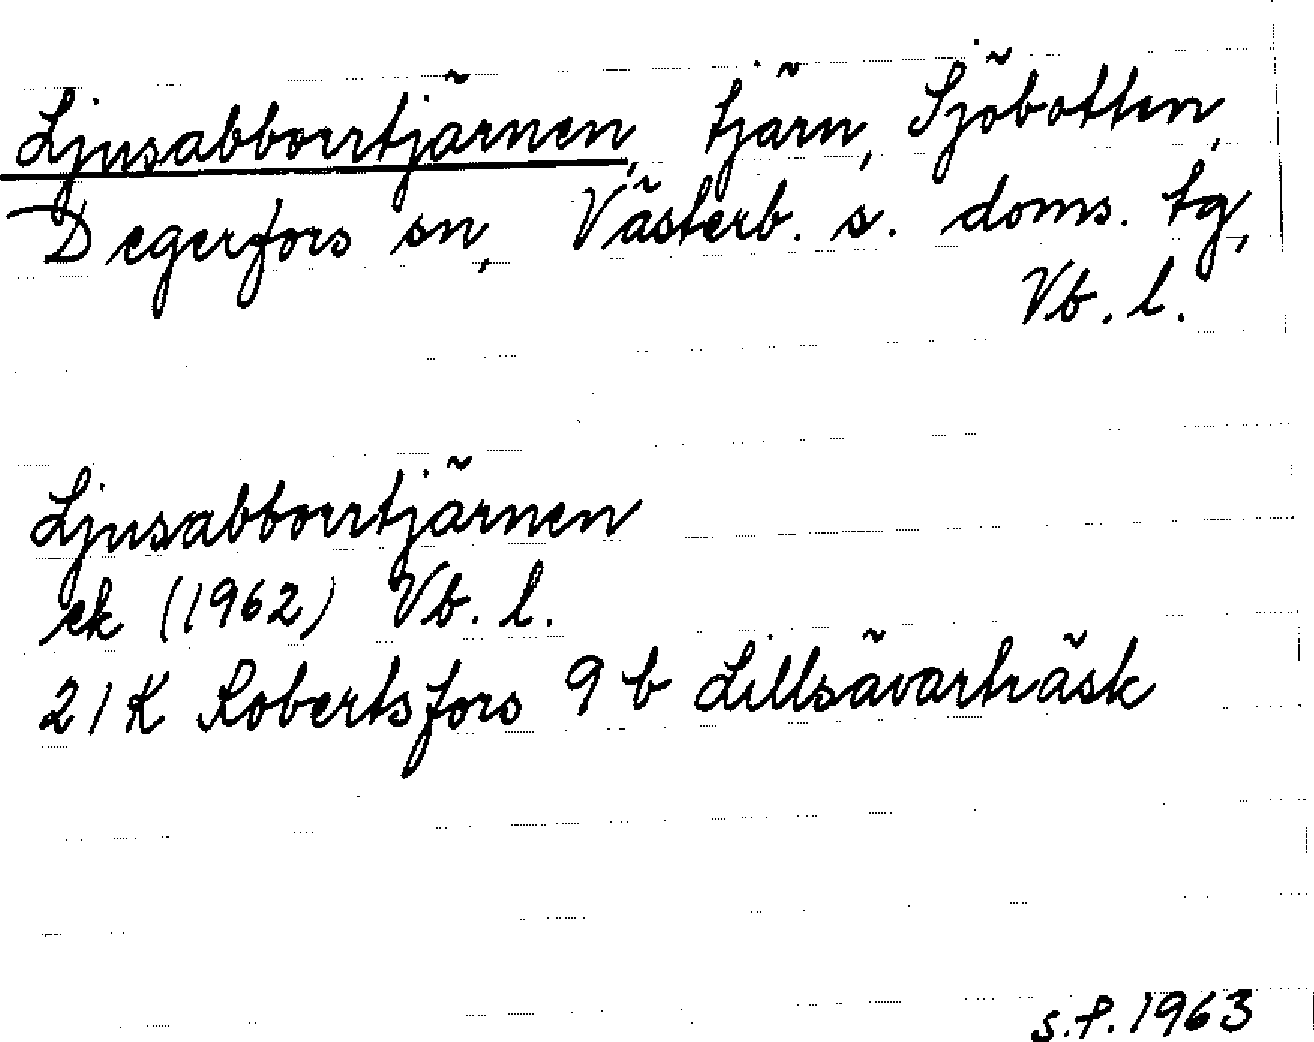 Ljusabborrtjärnen, tjärn, Sjöbotten,
Degerfors sn, Västerb. s. doms. tg,
Vb. l.
Ljusabborrtjärnen
ek (1962) Vb. l.
21K Robertsfors 9 b Lillsävarträsk
S.P. 1963